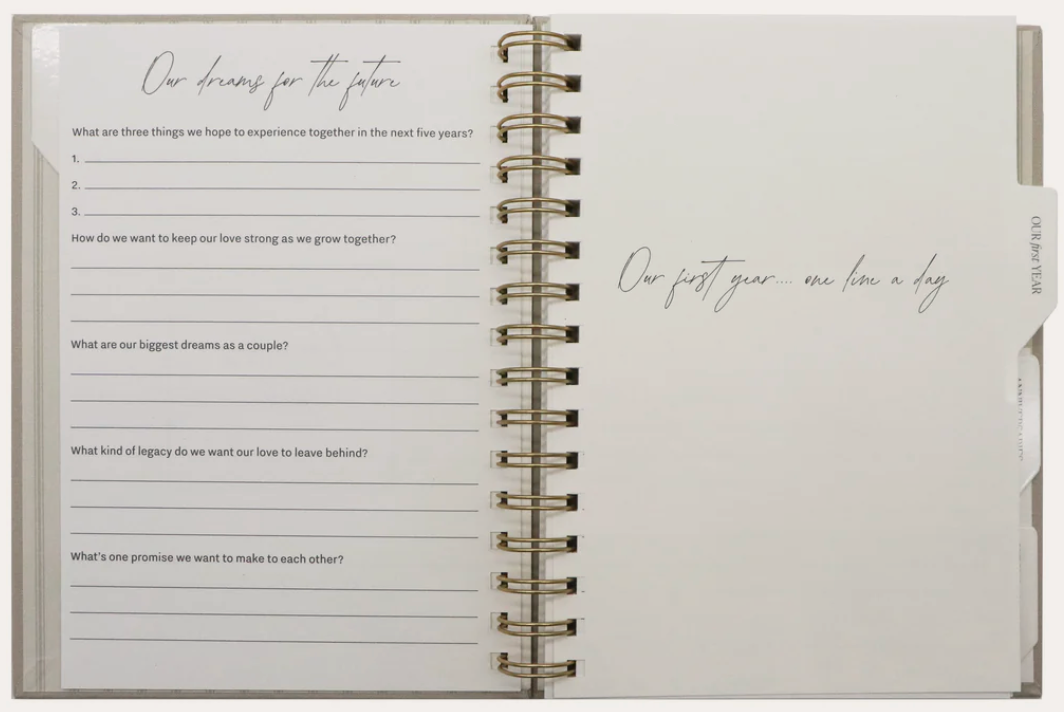 Our dreams for the future
What are three things we hope to experience together in the next five years?
1.
2.
3.
How do we want to keep our love strong as we grow together?
What are our biggest dreams as a couple?
What kind of legacy do we want our love to leave behind?
What's one promise we want to make to each other?
Our first year.... one line a day
OUR first YEAR